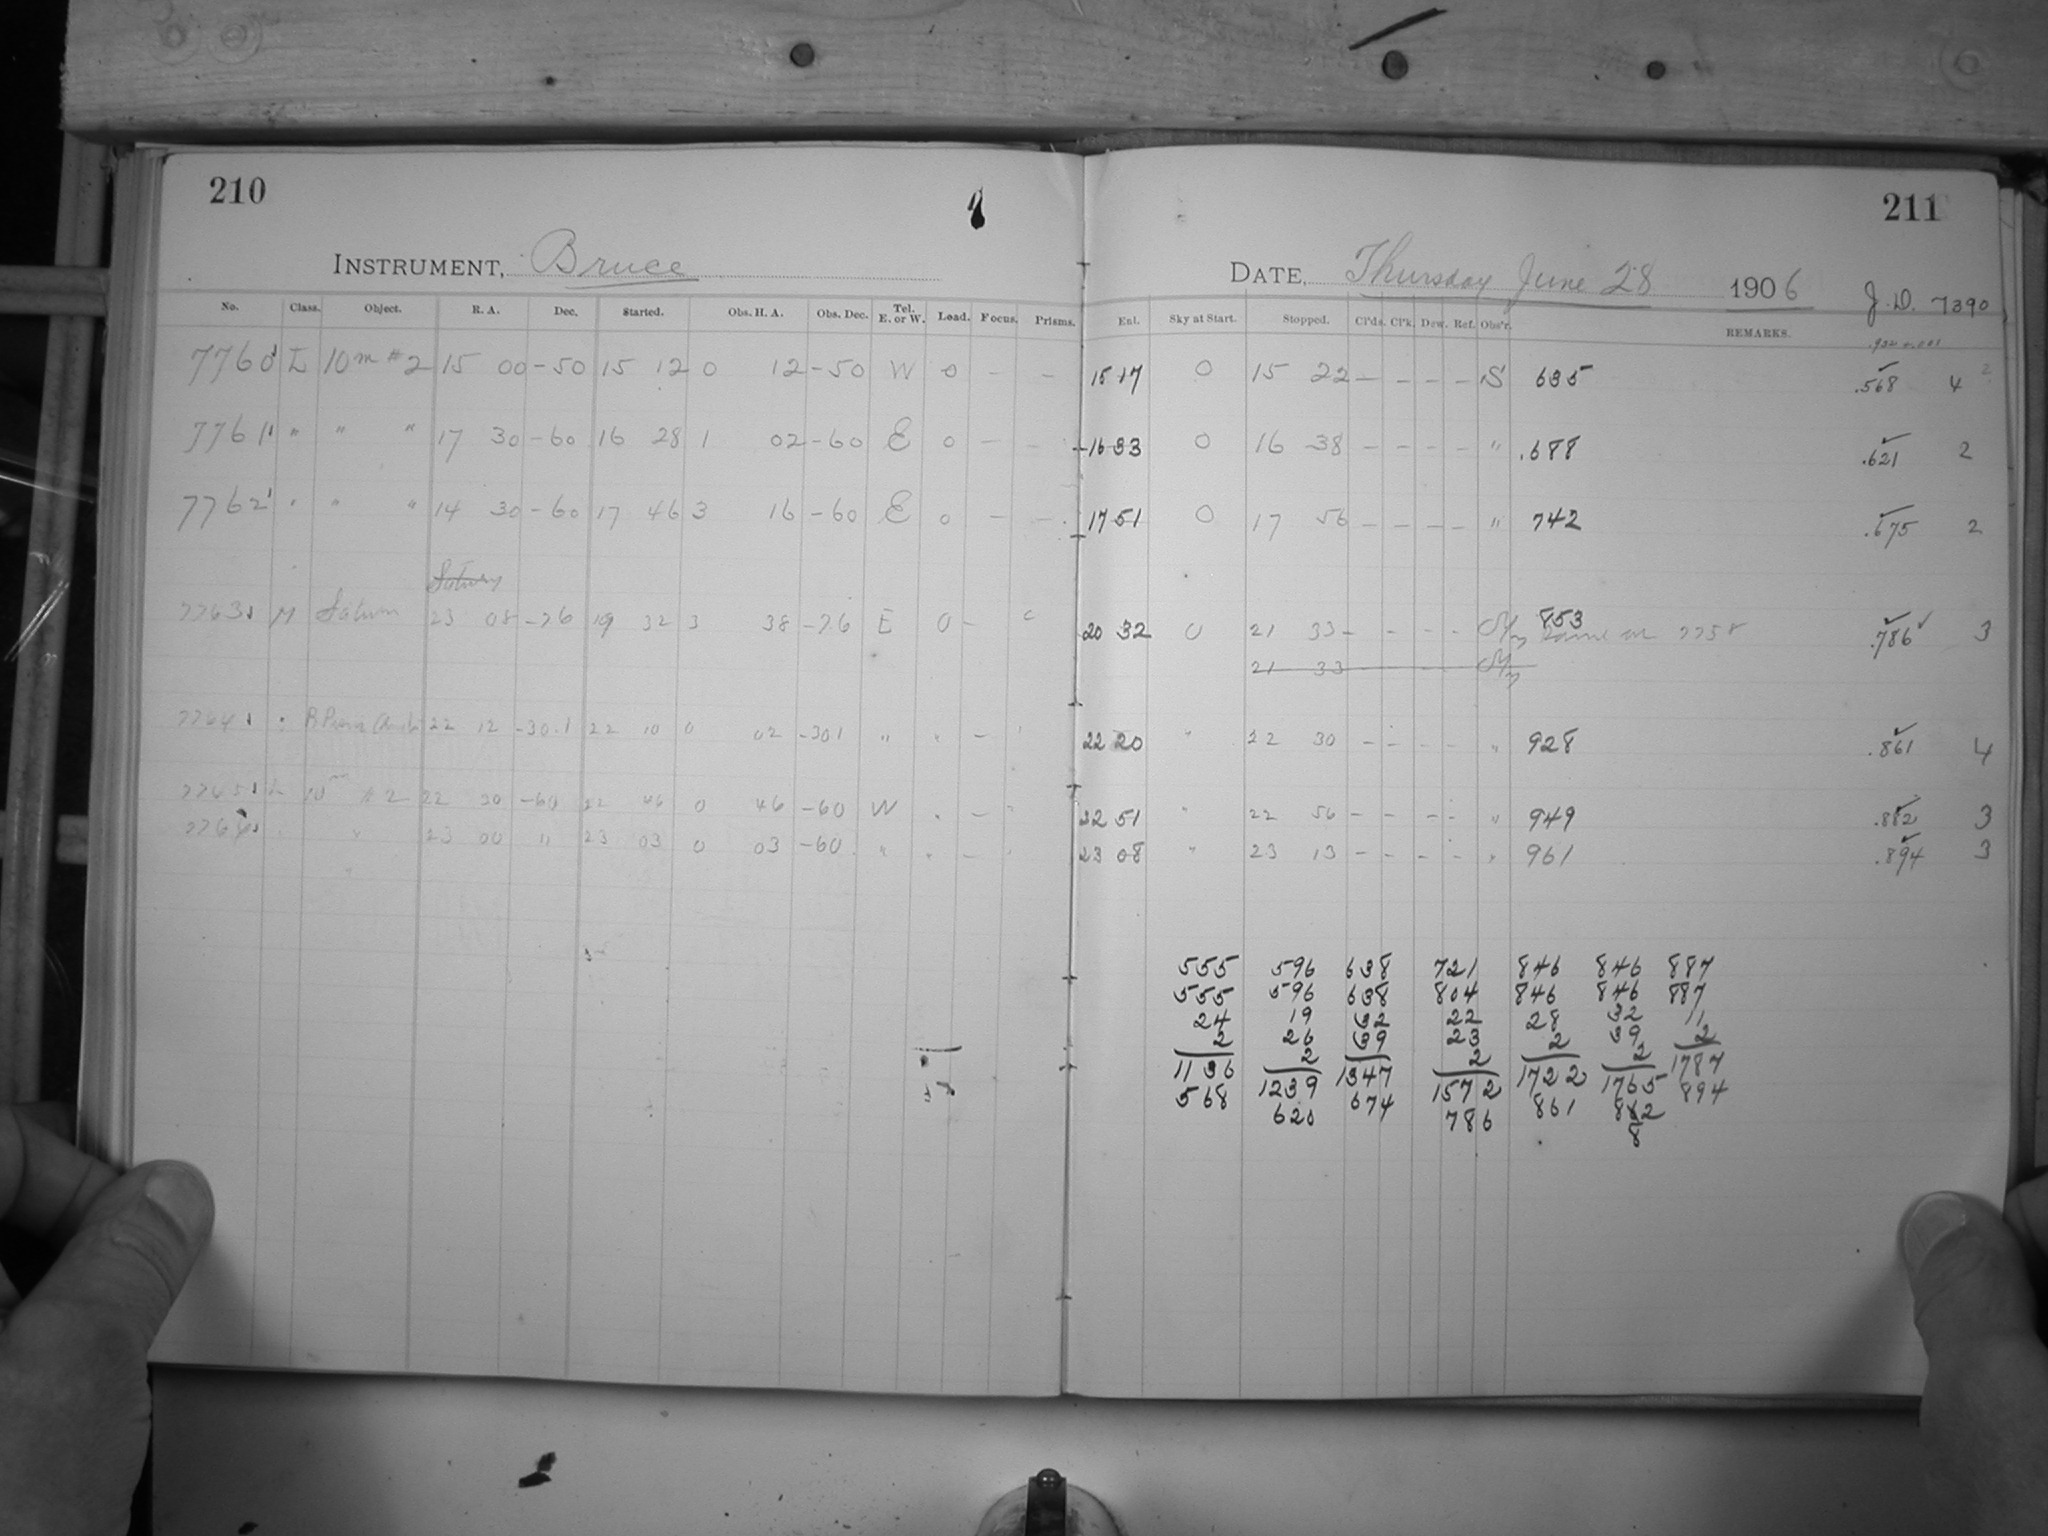 210
INSTRUMENT, Bruce
No. Class. Object. R. A. Dec. Started. Obs. H. A. Obs. Dec. Tel. E. or W. Load. Focus. Prisms.
7760 L 10m #2 15 00 -50 15 12 0 12 -50 W 0 - -
7761 " " " 17 30 -60 16 28 1 02 -60 E 0 - -
7762 " " " 14 30 -60 17 46 3 16 -60 E 0 - -
7763 M Saturn 23 08 -76 19 32 3 38 -76 E 0 -
7764 " 22 12 -30.1 22 10 0 02 -301 " " -
7765 L 10m #2 22 30 -60 22 46 0 46 -60 W " -
" 23 00 " 23 03 0 03 -60 " " -
211
DATE, Thursday June 28 1906 J.D. 7390
Enl. Sky at Start. Stopped. Cl'ds. Cl'k. Dew. Ref. Obs'r. REMARKS.
15 17 0 15 22 - - - - S 635 .568 4
16 33 0 16 38 - - - - " .688 .621 2
17 51 0 17 56 - - - - " 742 .675 2
853
20 32 0 21 33 - - - - same as 7758 .786 3
21 33
22 20 " 22 30 - - - - " 928 .861 4
22 51 " 22 56 - - - - " 949 .882 3
23 08 " 23 13 - - - - " 961 .894 3
555 596 638 721 846 846 887
555 596 638 804 846 846 887
24 19 32 22 28 32 11
2 26 39 23 2 39 2
1136 2 1347 2 1722 2 1787
568 1239 674 1572 861 1765 894
620 786 882
8